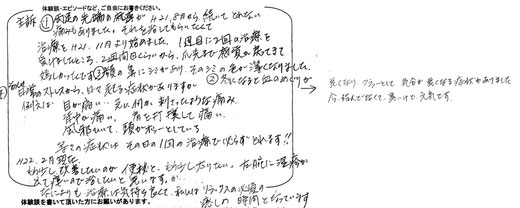 体験談・エピソードなど、ご自由にお書きください。
主訴 ① 両足の先端の感覚が H21, 8月から続いてとれない
痛みもありました。それを治してもらいたくて
治療を H21. 11月より始めました。1週間に2回の治療を
受けましたところ、2週間目ぐらいから、爪先まで感覚が戻ってきて
嬉しかったです ③ 顔の 薬 にシミがあり、そのシミの色が薄くなりました。
日常のストレスから、日々 症状がありますが ② 冬になると血のめぐりが
例えば 目が痛い 足に何か刺さったような痛み
背中が痛い、肩を打撲して痛い
風邪ひいて、頭がボーとしている
等々の症状は その日の1回の治療で とれます!!
悪くなり クラーッとして 気分が悪くなる症状がありました
今、悩んでなくて、薄つけで、元気です。
H22. 2月現在
もう少し改善したいのが 便秘と、もう少しやせたい。右腕に湿疹が
出て痒いので治したいと思います。が…
なによりも治療は気持ち良くて、私には リラックスの必須の
癒しの時間となっています
体験談を書いて頂いた方にお願いがあります。